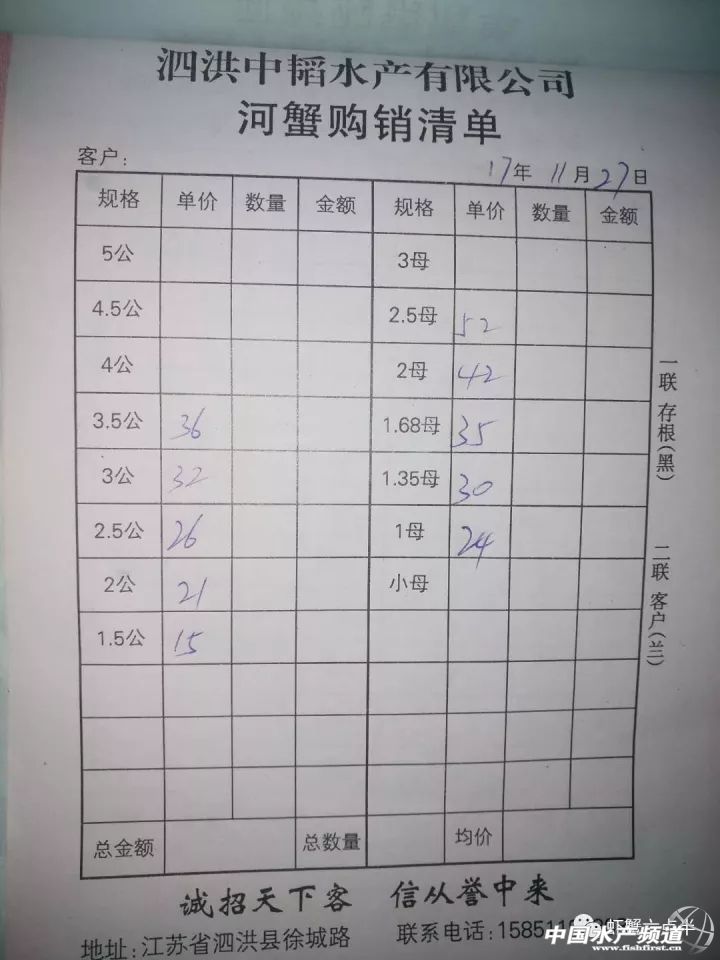 泗洪中韬水产有限公司
河蟹购销清单
客户:
17年 11月27日
规格 单价 数量 金额 规格 单价 数量 金额
5公 3母
4.5公 2.5母 52
4公 2母 42
3.5公 36 1.68母 35
3公 32 1.35母 30
2.5公 26 1母 24
2公 21 小母
1.5公 15
总金额 总数量 均价
一联 存根(黑)
二联 客户(兰)
诚招天下客 信从誉中来
地址:江苏省泗洪县徐城路 联系电话:158511
虾蟹六点半
中国水产频道
www.fishfirst.cn